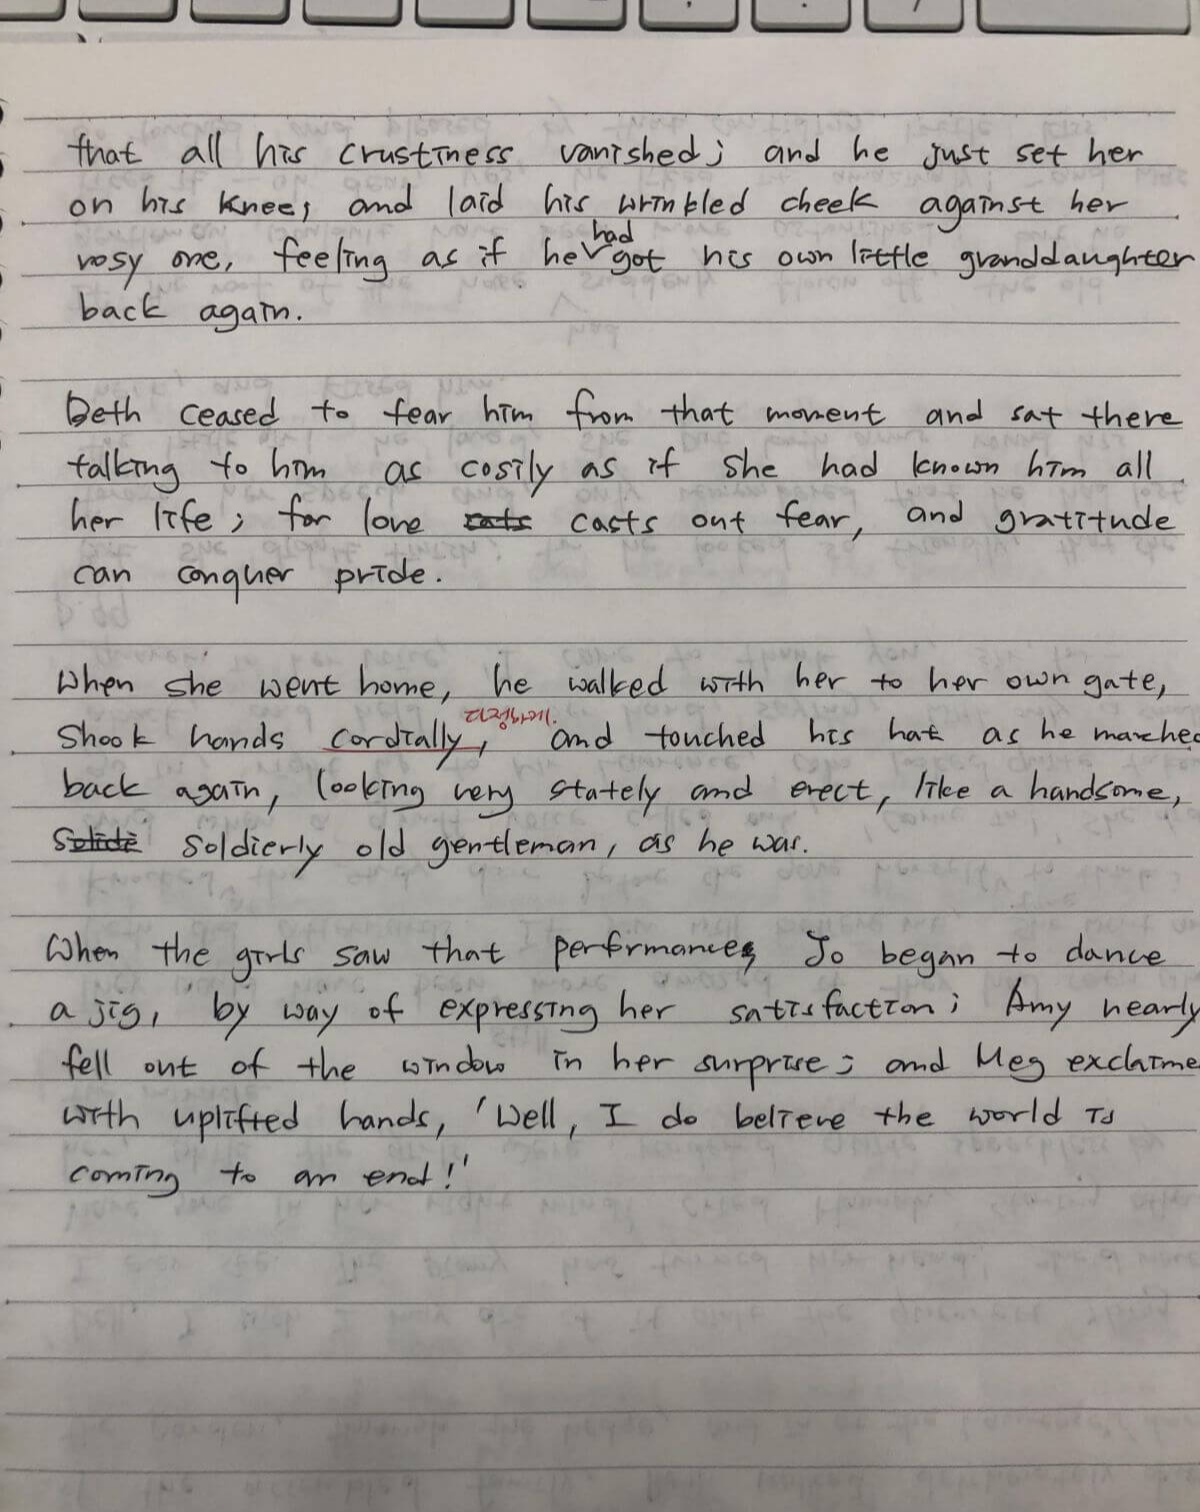 that all his crustiness vanished; and he just set her
on his knee, and laid his wrinkled cheek against her
rosy one, feeling as if he had got his own little granddaughter
back again.
Beth ceased to fear him from that moment and sat there
talking to him as cosily as if she had known him all
her life; for love cats casts out fear, and gratitude
can conquer pride.
When she went home, he walked with her to her own gate,
shook hands cordially, and touched his hat as he marched
다정하게.
back again, looking very stately and erect, like a handsome,
soldierly old gentleman, as he was.
When the girls saw that performance, Jo began to dance
a jig, by way of expressing her satisfaction; Amy nearly
fell out of the window in her surprise; and Meg exclaime
with uplifted hands, 'Well, I do believe the world is
coming to an end!'